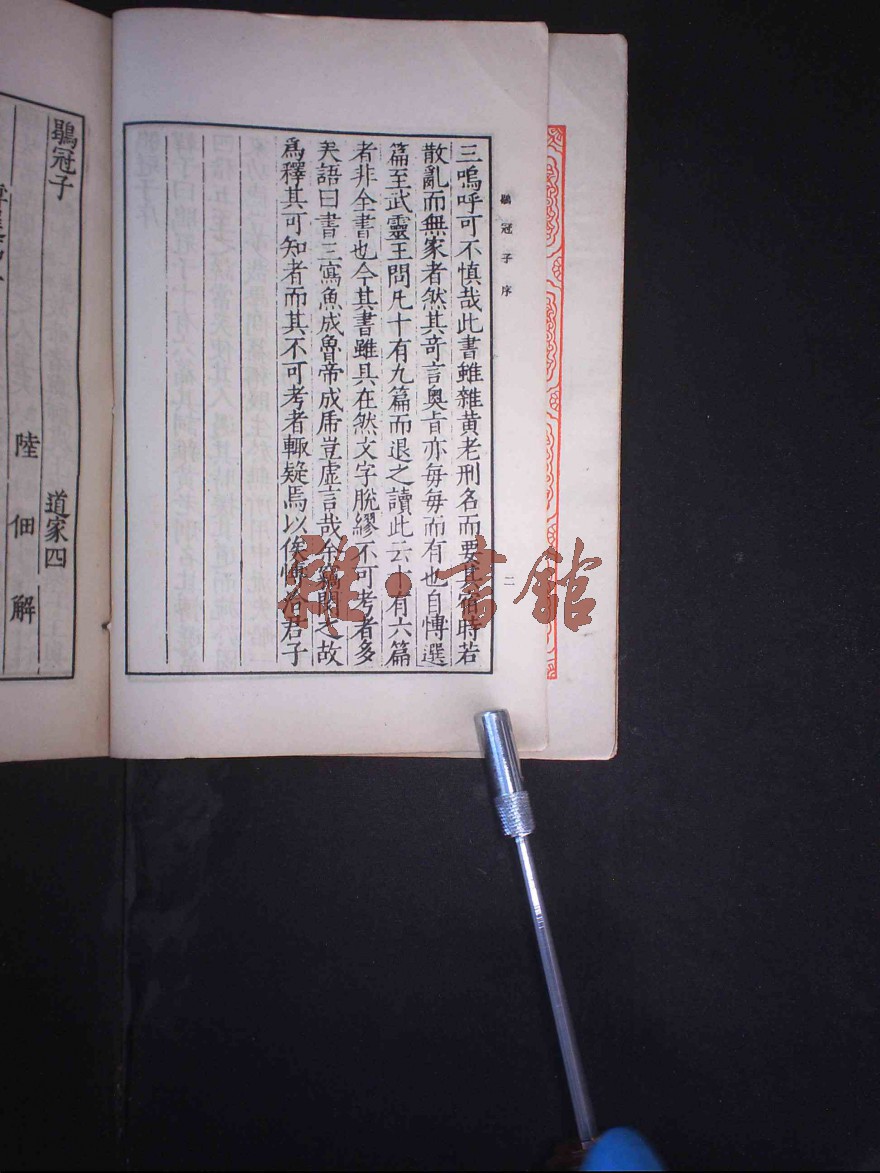 鶡冠子序
二
三嗚呼可不慎哉此書雖雜黃老刑名而要其宿時若
散亂而無家者然其奇言奧旨亦每每而有也自博選
篇至武靈王問凡十有九篇而退之讀此云十有六篇
者非全書也今其書雖具在然文字脫繆不可考者多
矣語曰書三寫魚成魯帝成虎豈虛言哉余竊閔之故
為釋其可知者而其不可考者輙疑焉以俟博洽君子
鶡冠子
道家四
陸佃解
雅·書館